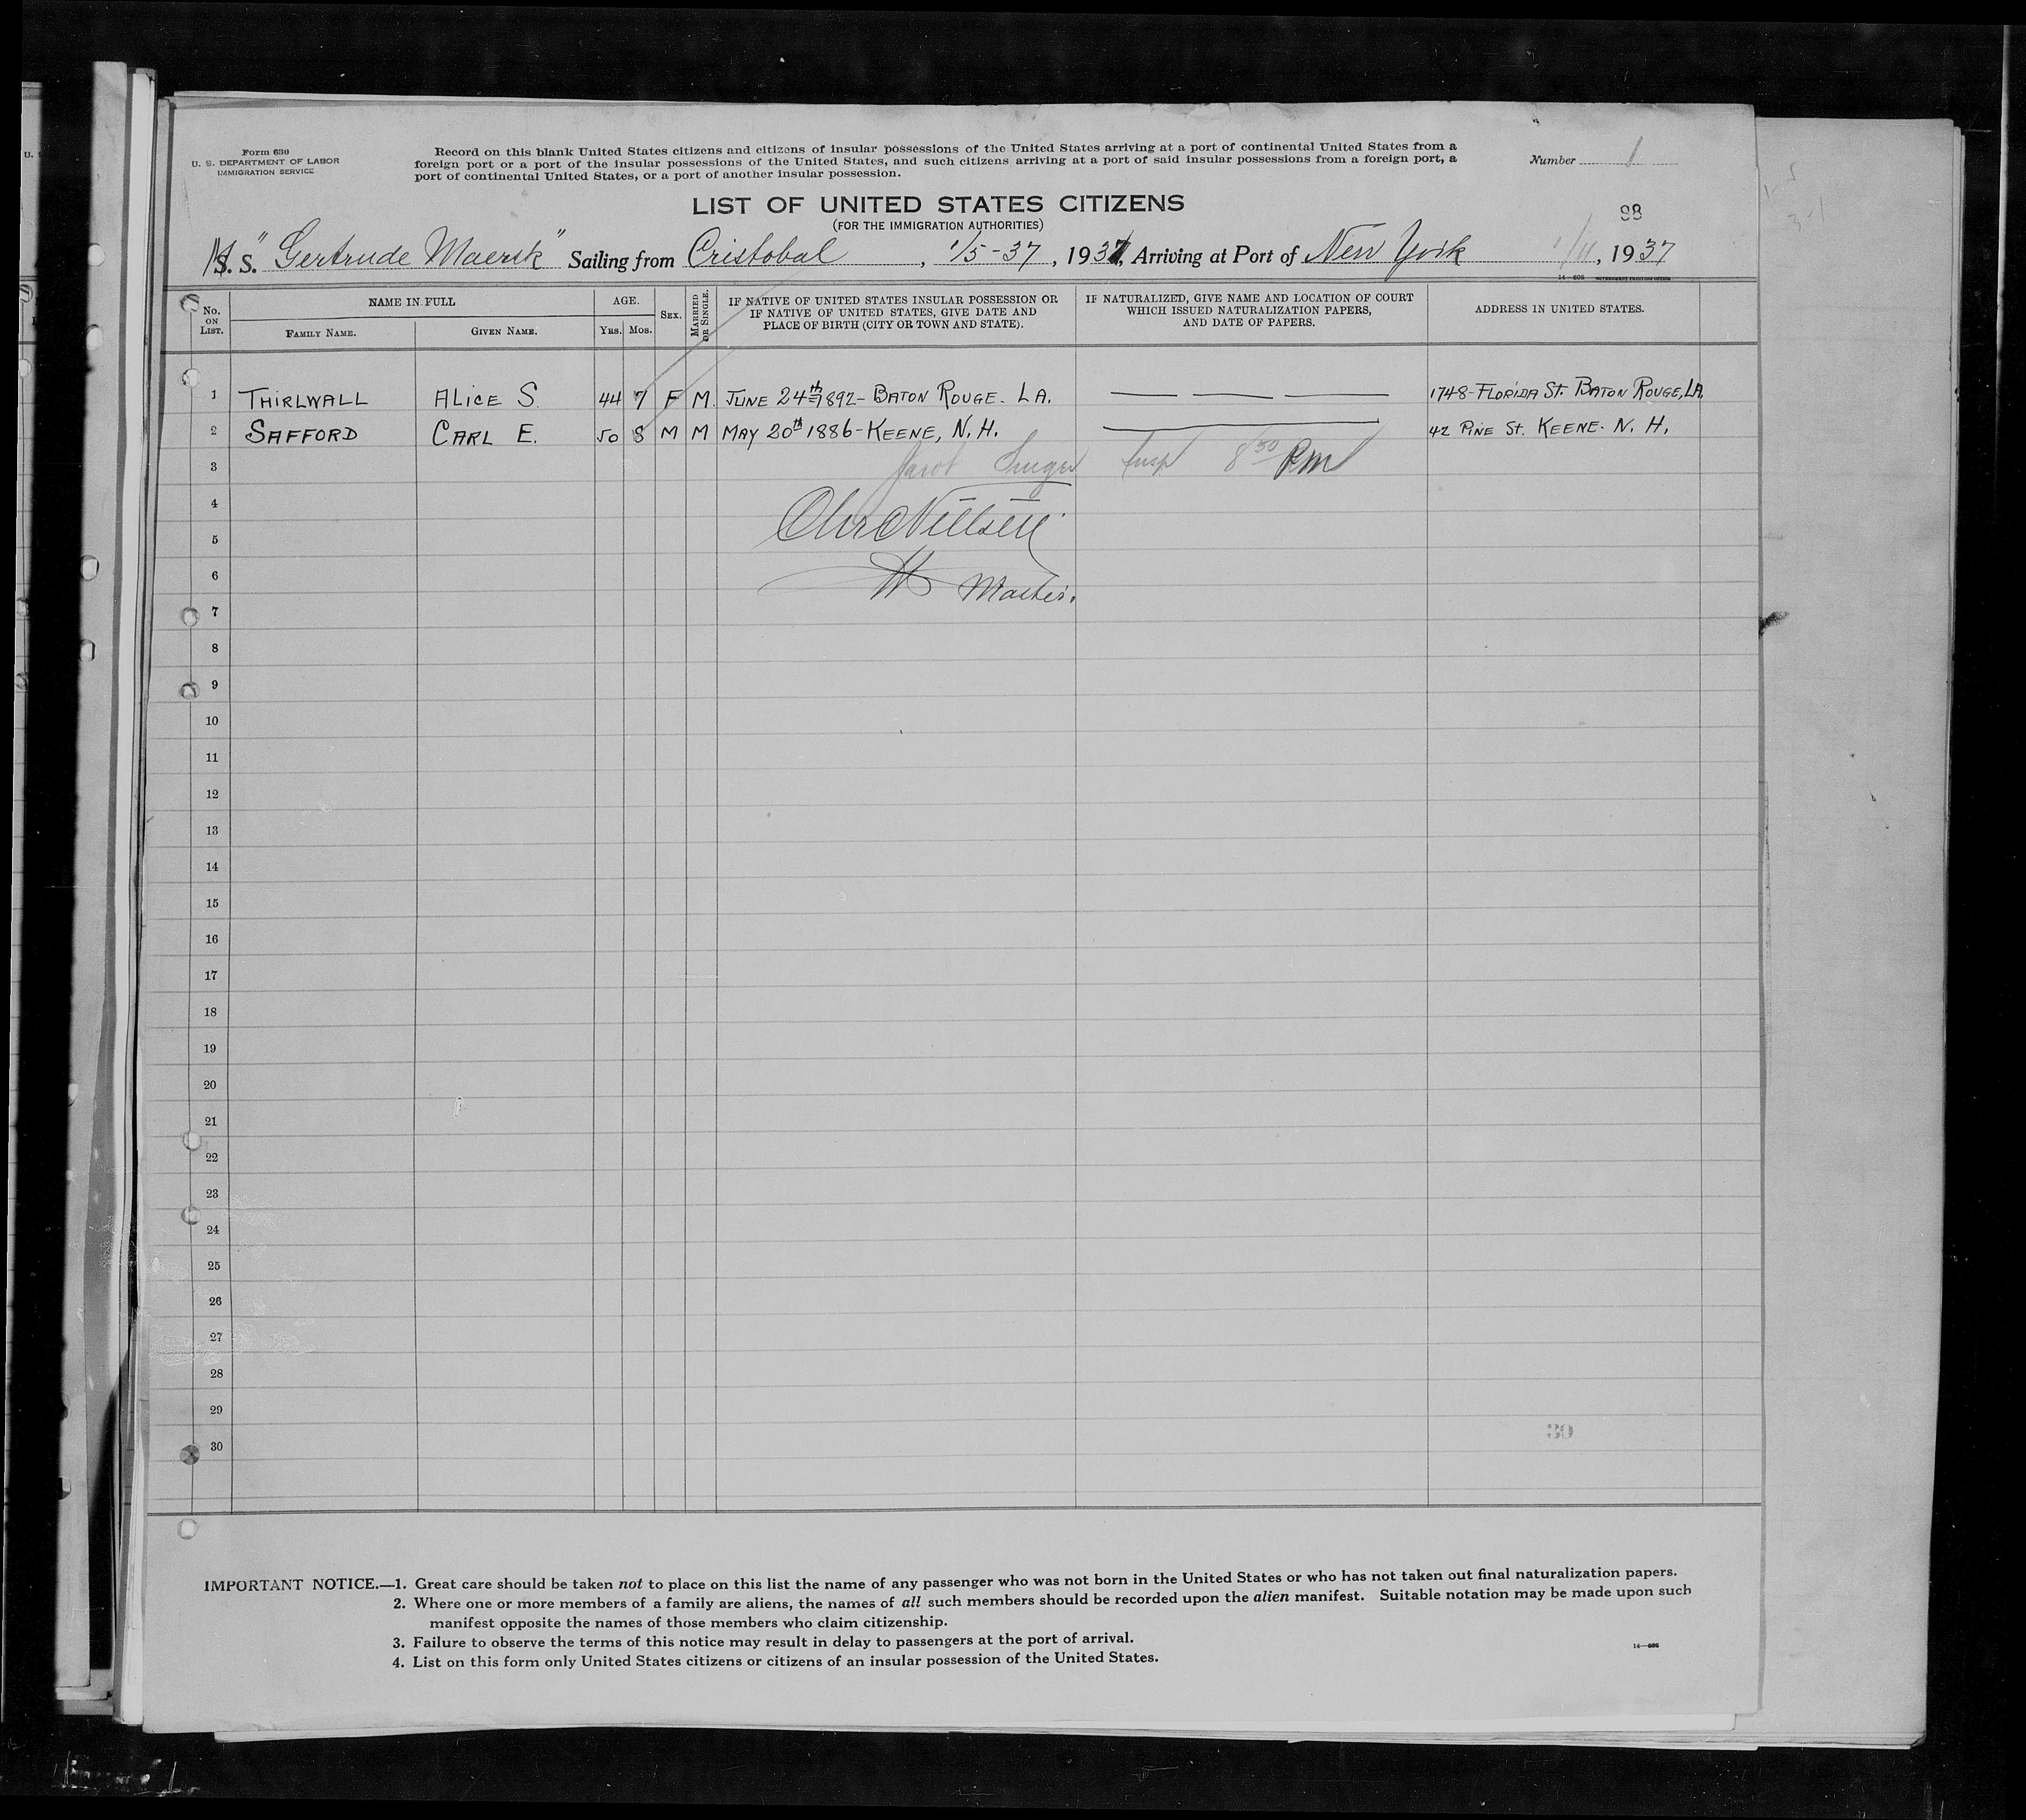 Form 630
U. S. DEPARTMENT OF LABOR
IMMIGRATION SERVICE
Record on this blank United States citizens and citizens of insular possessions of the United States arriving at a port of continental United States from a
foreign port or a port of the insular possessions of the United States, and such citizens arriving at a port of said insular possessions from a foreign port, a
port of continental United States, or a port of another insular possession.
Number 1
LIST OF UNITED STATES CITIZENS
(FOR THE IMMIGRATION AUTHORITIES)
98
S. S. "Gertrude Maersk" Sailing from Cristobal, 1/5-37, 1937, Arriving at Port of New York 1/11, 1937
No. ON LIST.
NAME IN FULL
FAMILY NAME. GIVEN NAME.
AGE.
YRS. MOS.
SEX.
MARRIED OR SINGLE.
IF NATIVE OF UNITED STATES INSULAR POSSESSION OR
IF NATIVE OF UNITED STATES, GIVE DATE AND
PLACE OF BIRTH (CITY OR TOWN AND STATE).
IF NATURALIZED, GIVE NAME AND LOCATION OF COURT
WHICH ISSUED NATURALIZATION PAPERS,
AND DATE OF PAPERS.
ADDRESS IN UNITED STATES.
1 THIRLWALL ALICE S. 44 7 F M. JUNE 24th 1892- BATON ROUGE. LA. — — — 1748-FLORIDA ST. BATON ROUGE, LA.
2 SAFFORD CARL E. 50 8 M M MAY 20th 1886-KEENE, N. H. — 42 PINE ST. KEENE. N. H.
3 Insp 8 30 PM
4
5
6 Master.
7
8
9
10
11
12
13
14
15
16
17
18
19
20
21
22
23
24
25
26
27
28
29
30
30
IMPORTANT NOTICE.—1. Great care should be taken not to place on this list the name of any passenger who was not born in the United States or who has not taken out final naturalization papers.
2. Where one or more members of a family are aliens, the names of all such members should be recorded upon the alien manifest. Suitable notation may be made upon such
manifest opposite the names of those members who claim citizenship.
3. Failure to observe the terms of this notice may result in delay to passengers at the port of arrival.
4. List on this form only United States citizens or citizens of an insular possession of the United States.